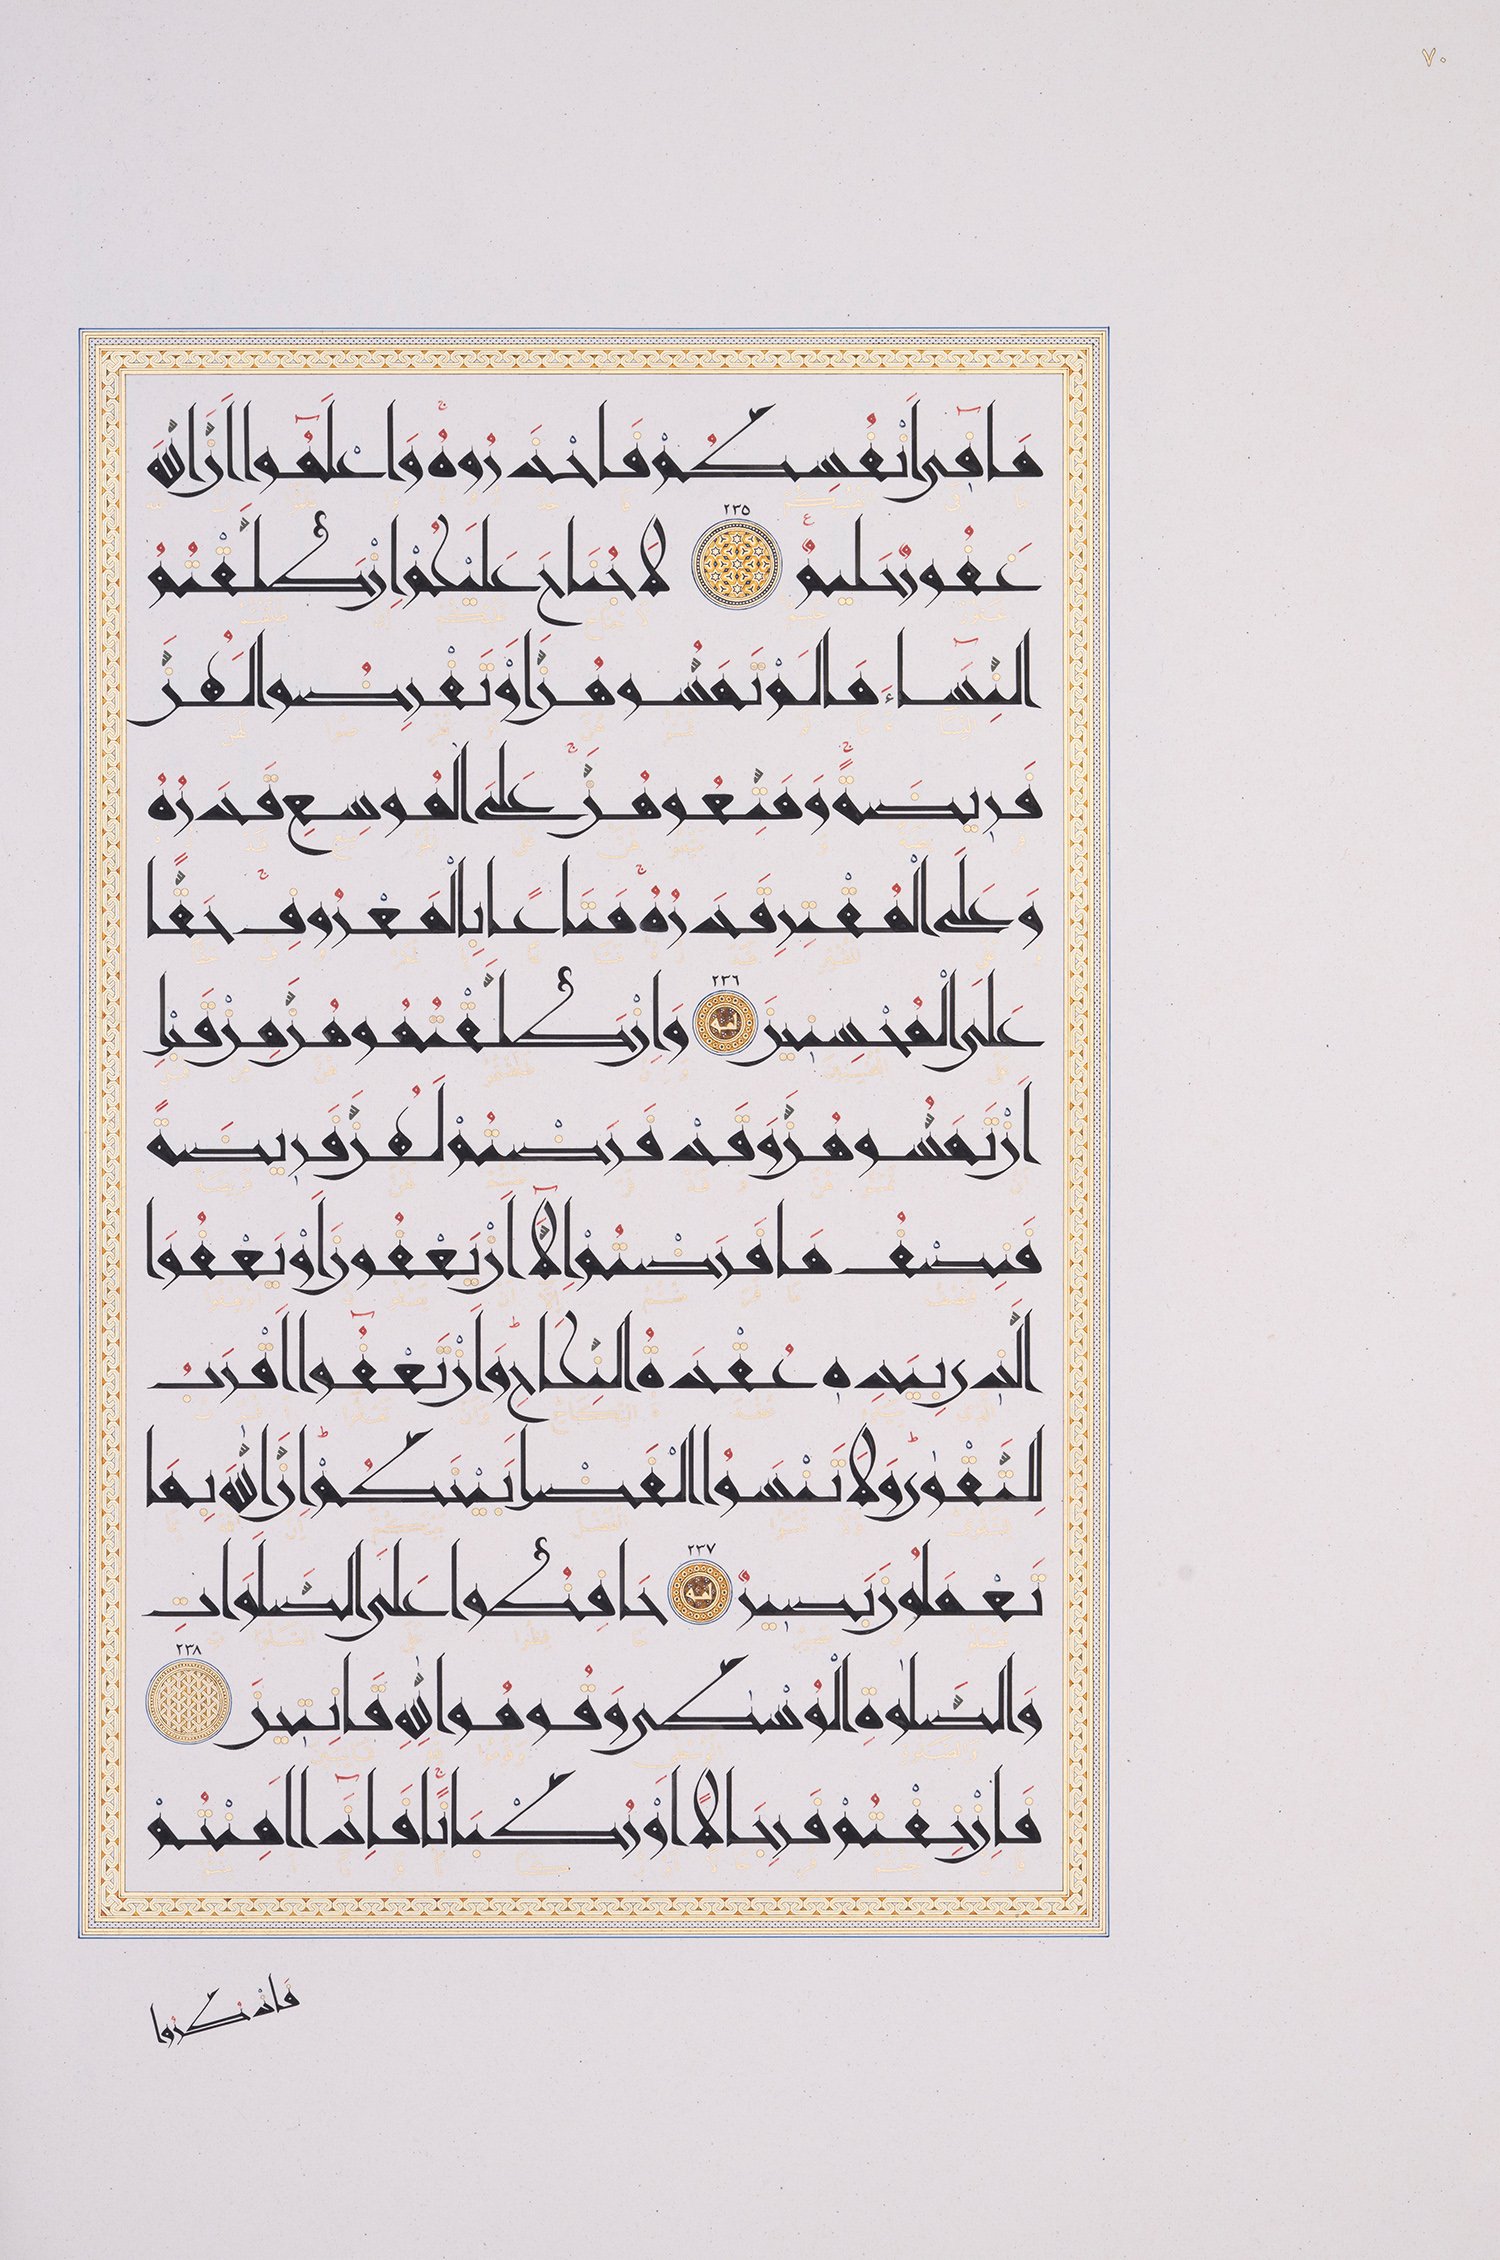 ٧٠
مَا فِىٓ أَنْفُسِكُمْ فَاحْذَرُوهُ ۚ وَاعْلَمُوٓا أَنَّ اللّٰهَ
غَفُورٌ حَلِيمٌ ٢٣٥ لَا جُنَاحَ عَلَيْكُمْ إِنْ طَلَّقْتُمُ
النِّسَآءَ مَا لَمْ تَمَسُّوهُنَّ أَوْ تَفْرِضُوا لَهُنَّ
فَرِيضَةً ۚ وَمَتِّعُوهُنَّ ۚ عَلَى الْمُوسِعِ قَدَرُهُ
وَعَلَى الْمُقْتِرِ قَدَرُهُ ۚ مَتَاعًا بِالْمَعْرُوفِ ۚ حَقًّا
عَلَى الْمُحْسِنِينَ ٢٣٦ وَإِنْ طَلَّقْتُمُوهُنَّ مِنْ قَبْلِ
أَنْ تَمَسُّوهُنَّ وَقَدْ فَرَضْتُمْ لَهُنَّ فَرِيضَةً
فَنِصْفُ مَا فَرَضْتُمْ إِلَّآ أَنْ يَعْفُونَ أَوْ يَعْفُوَا
الَّذِى بِيَدِهِ عُقْدَةُ النِّكَاحِ ۗ وَأَنْ تَعْفُوٓا أَقْرَبُ
لِلتَّقْوٰى ۗ وَلَا تَنْسَوُا الْفَضْلَ بَيْنَكُمْ ۗ إِنَّ اللّٰهَ بِمَا
تَعْمَلُونَ بَصِيرٌ ٢٣٧ حَافِظُوا عَلَى الصَّلَوَاتِ
وَالصَّلٰوةِ الْوُسْطٰى وَقُومُوا لِلّٰهِ قَانِتِينَ ٢٣٨
فَإِنْ خِفْتُمْ فَرِجَالًا أَوْ رُكْبَانًا ۚ فَإِذَآ أَمِنْتُمْ
فَاذْكُرُوا